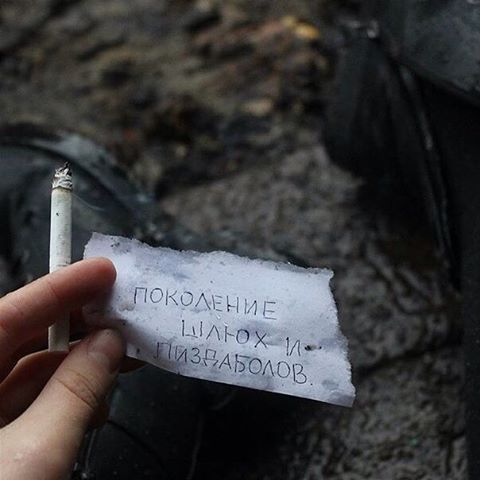 ПОКОЛЕНИЕ
ШЛЮХ И
ПИЗДАБОЛОВ.